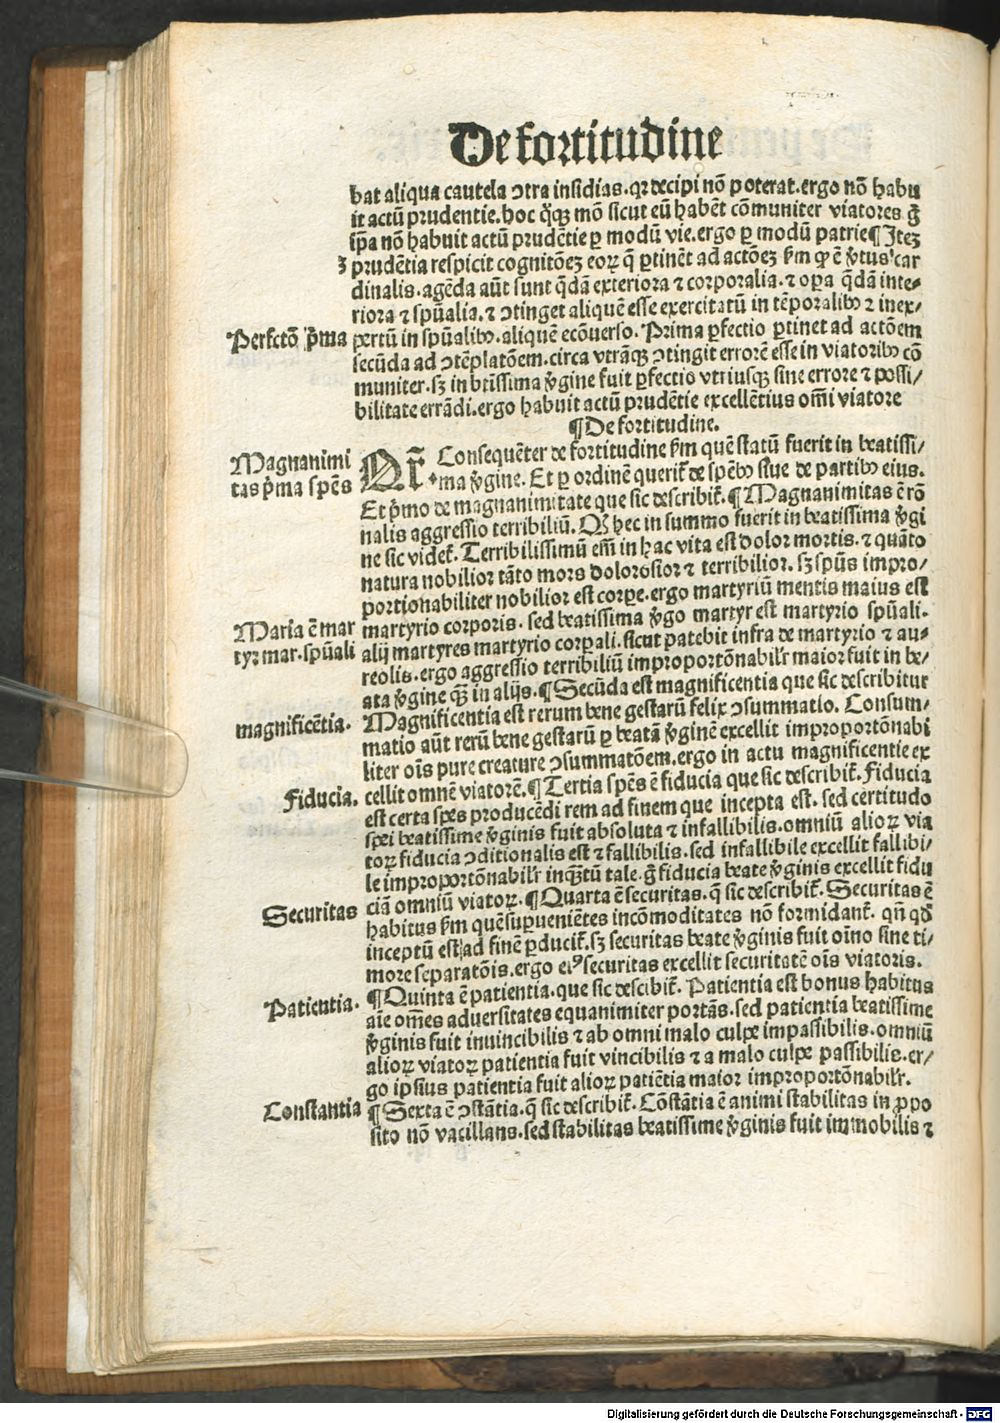 De fortitudine
bat aliqua cautela ↄtra insidias.qꝛ decipi nō poterat.ergo nō habu
it actū prudentie.hoc q̊q̨ mō sicut eū habēt cōmuniter viatores g̊
ip̄a nō habuit actū prudētie ꝑ modū vie.ergo ꝑ modū patrie¶Iteꝫ
ꝫ prudētia respicit cognitōeꝫ eoꝝ q̄ ꝑtinēt ad actōeꝫ ẜm ꝙ ē v̊tus car
dinalis.agēda aūt sunt q̄dā exteriora ⁊ corporalia.⁊ oꝑa q̄dā inte⸗
riora ⁊ spūalia.⁊ ↄtinget aliquē esse exercitatū in tēporalibꝰ ⁊ inex⸗
Perfctō p̊ma
pertū in spūalibꝰ.aliquē ecōuerso.Prima ꝑfectio ꝑtinet ad actōem
secūda ad ↄtēplatōem.circa vtrāqꝫ ↄtingit errorē esse in viatoribꝰ cō
muniter.sꝫ in btīssima v̊gine fuit ꝑfectio vtriusqꝫ sine errore ⁊ possi⸗
bilitate errādi.ergo habuit actū prudētie excellētius om̄i viatore
¶De fortitudine.
Magnanimi
tas p̊ma spēs
Nr̄. Consequēter de fortitudine ẜm quē statū fuerit in beatissi⸗
ma v̊gine. Et ꝑ ordinē querit᷑ de spēbꝰ siue de partibꝰ eius.
Et p̊mo de magnanimitate que sic describit᷑.¶Magnanimitas ē rō
nalis aggressio terribiliū. Qꝙ hec in summo fuerit in beatissima v̊gi
ne sic videt᷑.Terribilissimū em̄ in hac vita est dolor mortis.⁊ quāto
natura nobilior tāto mors dolorosior ⁊ terribilior.sꝫ spūs impro⸗
portionabiliter nobilior est corpe.ergo martyriū mentis maius est
Maria ē mar
tyꝛ mar.spūali
martyrio corporis. sed beatissima v̊go martyr est martyrio spūali.
alij martyres martyrio corꝑali.sicut patebit infra de martyrio ⁊ au⸗
reolis.ergo aggressio terribiliū improportōnabilr̄ maior fuit in be⸗
ata v̊gine qꝫ̄ in alijs.¶Secūda est magnificentia que sic describitur
magnificētia.
Magnificentia est rerum bene gestarū felix ↄsummatio. Consum⸗
matio aūt rerū bene gestarū ꝑ beatā v̊ginē excellit improportōnabi
liter oīs pure creature ↄsummatōem.ergo in actu magnificentie ex
cellit omnē viatorē.¶Tertia spēs ē fiducia que sic describit᷑.Fiducia
Fiducia.
est certa spes producēdi rem ad finem que incepta est. sed certitudo
spei beatissime v̊ginis fuit absoluta ⁊ infallibilis.omniū alioꝝ via
toꝝ fiducia ↄditionalis est ⁊ fallibilis.sed infallibile excellit fallibi⸗
le improportōnabilr̄ inqꝫ̄tū tale.g̊ fiducia beate v̊ginis excellit fidu
Securitas
ciā omniū viatoꝝ.¶Quarta ē securitas.q̄ sic describit᷑.Securitas ē
habitus ẜm quē suꝑuenientes incōmoditates nō formidant᷑. qn̄ qđ
inceptū est ad finē ꝑducit᷑.sꝫ securitas beate v̊ginis fuit oīno sine ti⸗
more separatōis.ergo eiꝰ securitas excellit securitatē oīs viatoris.
Patientia.
¶Quinta ē patientia.que sic descibit᷑. Patientia est bonus habitus
aīe om̄es aduersitates equanimiter portās.sed patientia beatissime
v̊ginis fuit inuincibilis ⁊ ab omni malo culpe impassibilis.omniū
alioꝝ viatoꝝ patientia fuit vincibilis ⁊ a malo culpe passibilis.er⸗
go ipsius patientia fuit alioꝝ patiētia maior improportōnabilr̄.
Constantia
¶Sexta ē ↄstātia.q̄ sic describit᷑. Cōstātia ē animi stabilitas in ꝓpo
sito nō vacillans.sed stabilitas beatissime v̊ginis fuit immobilis ⁊
Digitalisierung gefördert durch die Deutsche Forschungsgemeinschaft - DFG